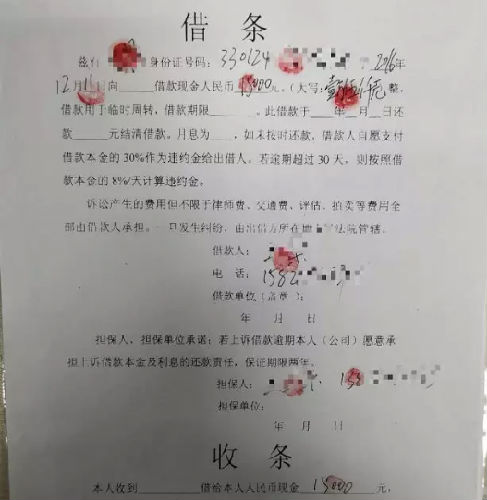 借 条
兹有 身份证号码：330124 2016年
12月11日向______借款现金人民币15000元，（大写：壹万伍仟元整，
借款用于临时周转，借款期限______。此借款于____年__月__日还
款______元结清借款。月息为____，如未按时还款，借款人自愿支付
借款本金的30%作为违约金给出借人。若逾期超过30天，则按照借
款本金的8%/天计算违约金。
诉讼产生的费用但不限于律师费、交通费、评估、拍卖等费用全
部由借款人承担。一旦发生纠纷，由出借方所在地 法院管辖。
借款人：
电 话：1582
借款单位（盖章）：
年 月 日
担保人、担保单位承诺：若上诉借款逾期本人（公司）愿意承
担上诉借款本金及利息的还款责任，保证期限两年。
担保人：
担保单位：
年 月 日
收 条
本人收到________借给本人人民币现金15000元，